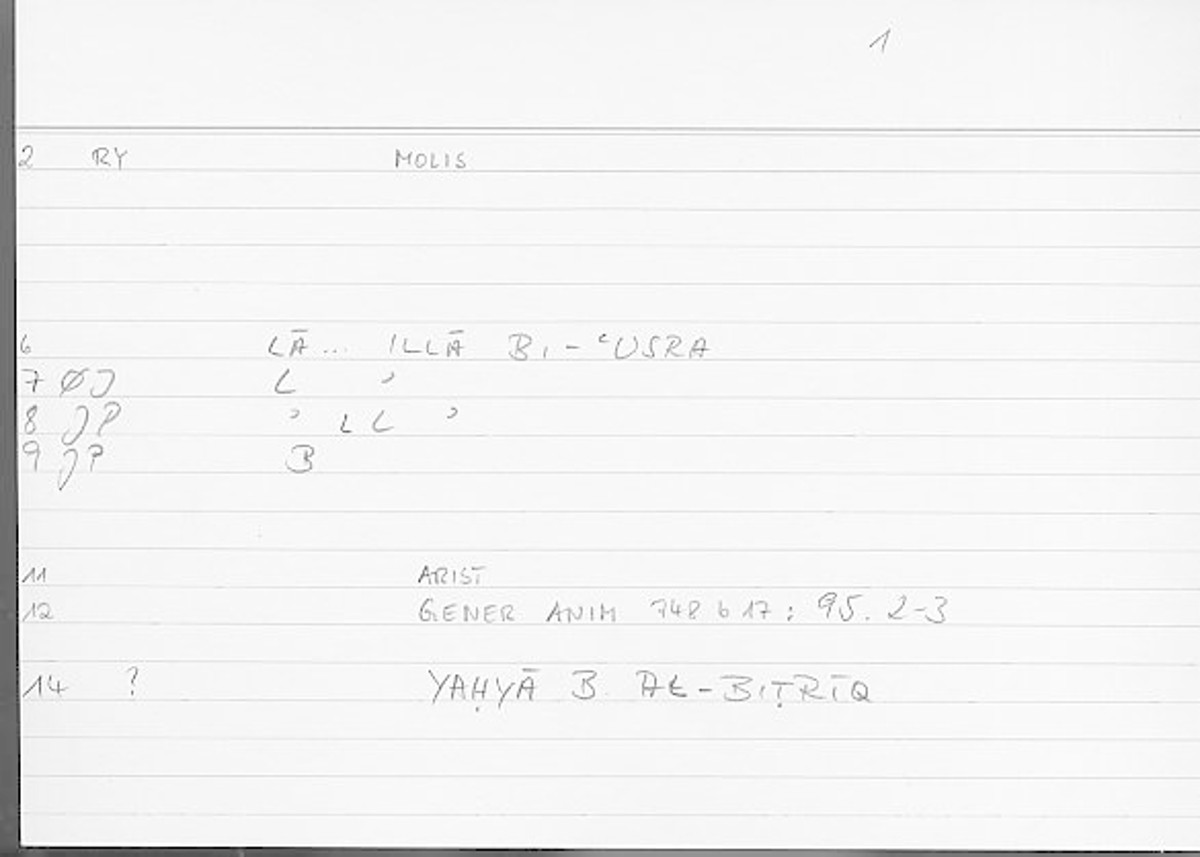 1
2 RY MOLIS
6 LĀ... ILLĀ BI-ʿUSRA
7 ØJ L ʾ
8 JP ʾ L L ʾ
9 JP B
11 ARIST
12 GENER ANIM 748 b 17 : 95. 2-3
14 ? YAḤYĀ B AL-BIṬRĪQ